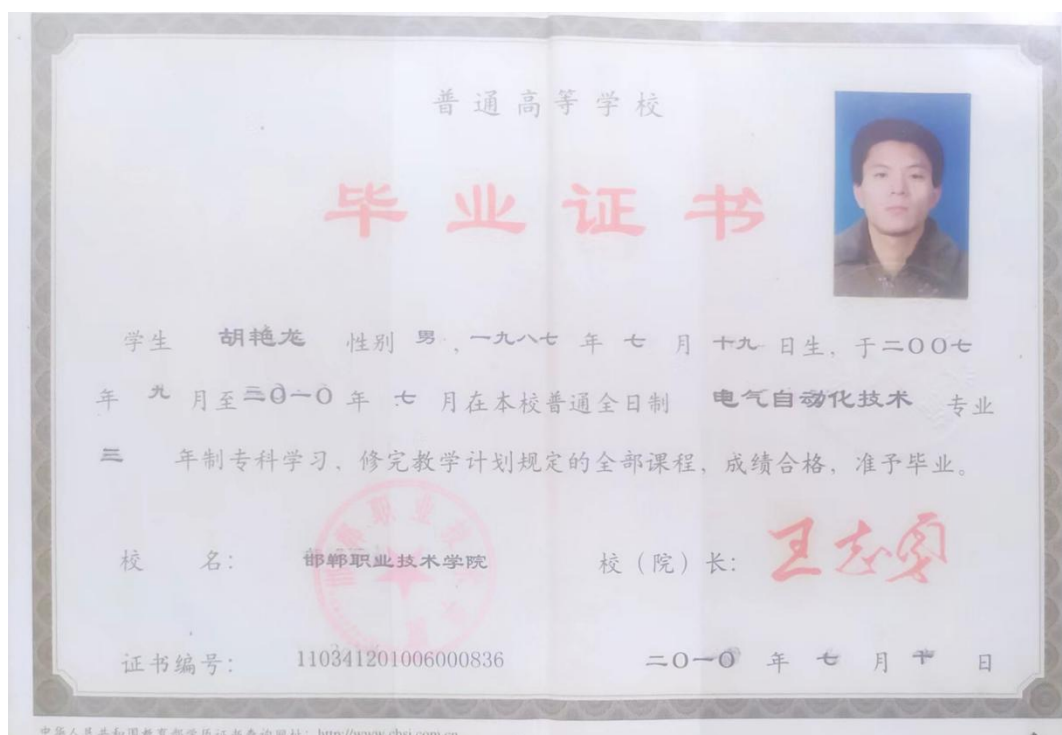 普通高等学校
毕业证书
学生 胡艳龙 性别 男，一九八七 年 七 月 十九 日生，于二〇〇七
年 九 月至二〇一〇 年 七 月在本校普通全日制 电气自动化技术 专业
三 年制专科学习，修完教学计划规定的全部课程，成绩合格，准予毕业。
校 名： 邯郸职业技术学院 校（院）长：
证书编号： 110341201006000836 二〇一〇 年 七 月 十 日
中华人民共和国教育部学历证书查询网址：http://www.chsi.com.cn